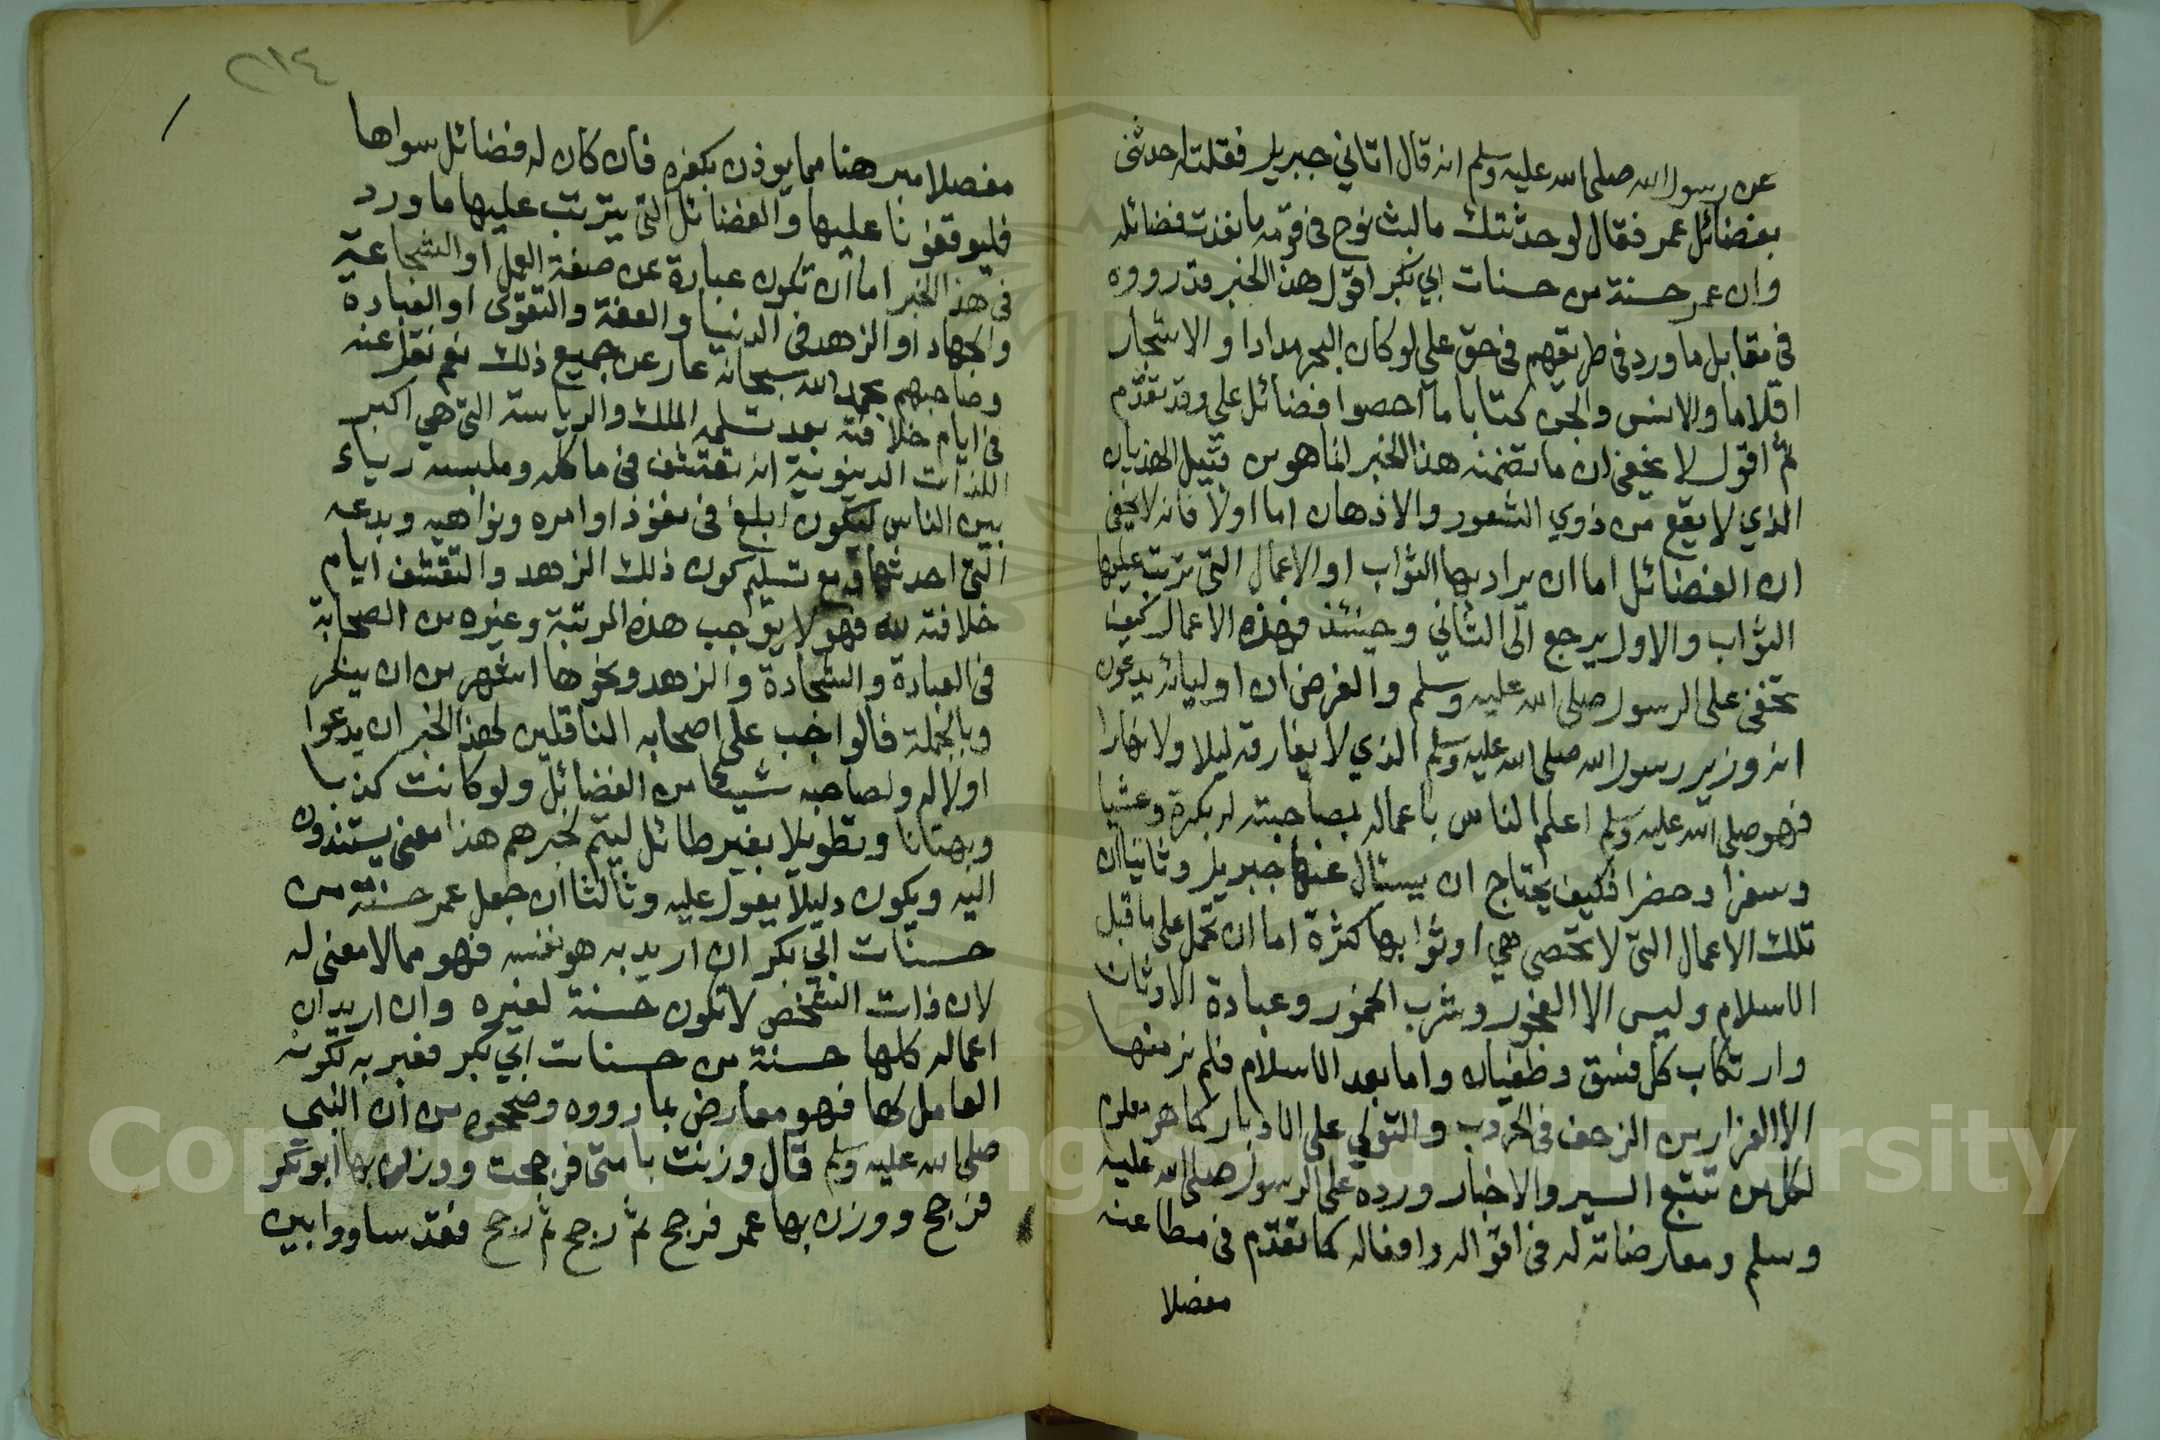 عن رسول الله صلى الله عليه وسلم انه قال اتاني جبريل فقلت له حدثنى
بفضائل عمر فقال لو حدثتك ما لبث نوح في قومه ما نفذت فضائله
وان عمر حسنة من حسنات ابي بكر اقول هذا الخبر قد رووه
في مقابل ما ورد في طريقهم في حق علي لو كان البحر مدادا والاشجار
اقلاما والانس والجن كتابا ما احصوا فضائل على وقد تقدم
ثم اقول لا يخفى ان ما تضمنه هذا الخبر انما هو من قبيل الهذيان
الذي لا يقع من ذوي الشعور والاذهان اما اولا فانه لا يخفى
ان الفضائل اما ان يراد بها الثواب او الاعمال التي ترتب عليها
الثواب والاول يرجع الى الثاني وحينئذ فهذه الاعمال كيف
تخفى على الرسول صلى الله عليه وسلم والغرض ان اوليائه يدعون
انه وزير رسول الله صلى الله عليه وسلم الذي لا يفارقه ليلا ولا نهارا
فهو صلى الله عليه وسلم اعلم الناس باعماله بصاحبته له بكرة وعشيا
وسفرا وحضرا فكيف يحتاج ان يسئال عنها جبريل وثانيا ان
تلك الاعمال التي لا تحصى هي او ثوابها كثرة اما ان تحمل على ما قبل
الاسلام وليس الا الفجور وشرب الخمور وعبادة الاوثان
وارتكاب كل فسق وطغيان واما بعد الاسلام فلم نر منها
الا الفرار من الزحف في الحروب والتولي على الادبار كما هو معلوم
لكل من تتبع السير والاخبار ورده على الرسول صلى الله عليه
وسلم ومعارضاته له في اقواله وافعاله كما تقدم في مطاعنه
مفصلا
٢١٤
مفصلا مبرهنا مما يوذن بكفره فان كان له فضائل سواها
فليوقفونا عليها والفضائل التي يترتب عليها ما ورد
في هذا الخبر اما ان تكون عبارة عن صفة العلم او الشجاعة
والجهاد او الزهد في الدنيا والعفة والتقوى او العبادة
وصاحبهم بحمد الله سبحانه عار عن جميع ذلك نعم نقل عنه
في ايام خلافته بعد تسلمه الملك والرياسة التي هي اكبر
اللذات الدينوية انه تقشف في ماكله وملبسه رياء
بين الناس ليكون ابلغ في نفوذ اوامره ونواهيه وبدعه
التي احدثها ومع تسليم كون ذلك الزهد والتقشف ايام
خلافته لله فهو لا يوجب هذه المرتبة وغيره من الصحابة
في العبادة والشجادة والزهد ونحوها اشهر من ان ينكر
وبالجملة فالواجب على اصحابه الناقلين لهذا الخبر ان يدعوا
اولا له ولصاحبه شيئا من الفضائل ولو كانت كذبا
وبهتانا وتطويلا بغير طائل ليتم لخبرهم هذا معنى يستندون
اليه ويكون دليلا يعول عليه وثالثا ان جعل عمر حسنة من
حسنات ابي بكر ان اريد به هو نفسه فهو مما لا معنى له
لان ذات الشخص لا تكون حسنة لغيره وان اريد ان
اعماله كلها حسنة من حسنات ابي بكر فعبر به لكونه
العامل لها فهو معارض بما رووه وصححوه من ان النبي
صلى الله عليه وسلم قال وزنت بامتى فرجحت ووزن بها ابو بكر
فرجح ووزن بها عمر فرجح ثم رجح ثم رجح فقد ساووا بين
Copyright © King Saud University